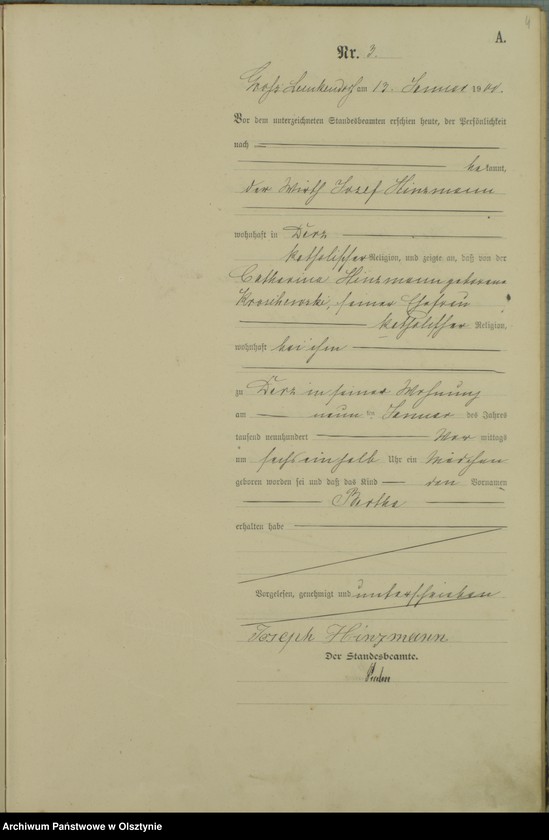 4
A.
Nr. 3.
Gross Leschkendorf am 13. Januar 1900.
Vor dem unterzeichneten Standesbeamten erschien heute, der Persönlichkeit
nach
bekannt,
der Wirth Josef Hinzmann
wohnhaft in Derz
katholischer Religion, und zeigte an, daß von der
Catharina Hinzmann geborene
seiner Ehefrau
katholischer Religion,
wohnhaft bei ihm
zu Derz in seiner Wohnung
am neunten Januar des Jahres
tausend neunhundert Vor mittags
um sechs einhalb Uhr ein Mädchen
geboren worden sei und daß das Kind den Vornamen
Bertha
erhalten habe
Vorgelesen, genehmigt und unterschrieben
Joseph Hinzmann
Der Standesbeamte.
Archiwum Państwowe w Olsztynie